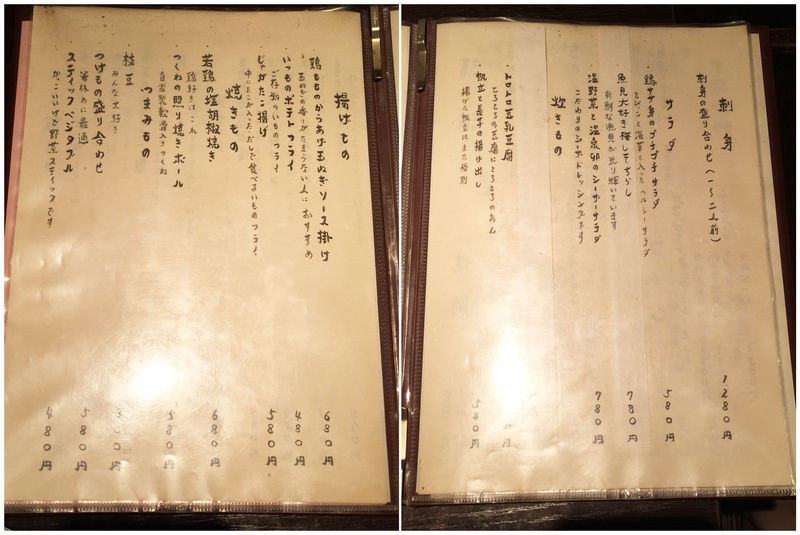 刺身
刺身の盛り合わせ（一〜二人前） 1280円
サラダ
・鶏ササ身のプチプチサラダ 580円
とびっこと海草も入ったヘルシーサラダ
・魚見大好き梅しそちらし 780円
新鮮な魚見が光り輝いています
・温野菜と温泉卵のシーザーサラダ 780円
こだわりのシーザードレッシングです
炊きもの
・トロトロ豆乳豆腐 円
とろとろの豆腐にとろとろのあん
・帆立と長芋の揚げ出し 580円
揚げた帆立はまた格別
揚げもの
・鶏もものからあげ玉ねぎソース掛け 680円
玉ねぎの香りがたまらない人におすすめ
・いつものポテトフライ 480円
ご存知のいものフライ
・じゃがたこ揚げ 580円
中にたこが入った、だしで食べるいものフライ
焼きもの
・若鶏の塩胡椒焼き 680円
鶏好きはこれ
・つくねの照り焼きボール 580円
自家製軟骨入りつくね
つまみもの
・枝豆 300円
みんな大好き
・つけもの盛り合わせ 580円
箸休めに最適
・スティックベジタブル 480円
かっこいいけど野菜スティックです